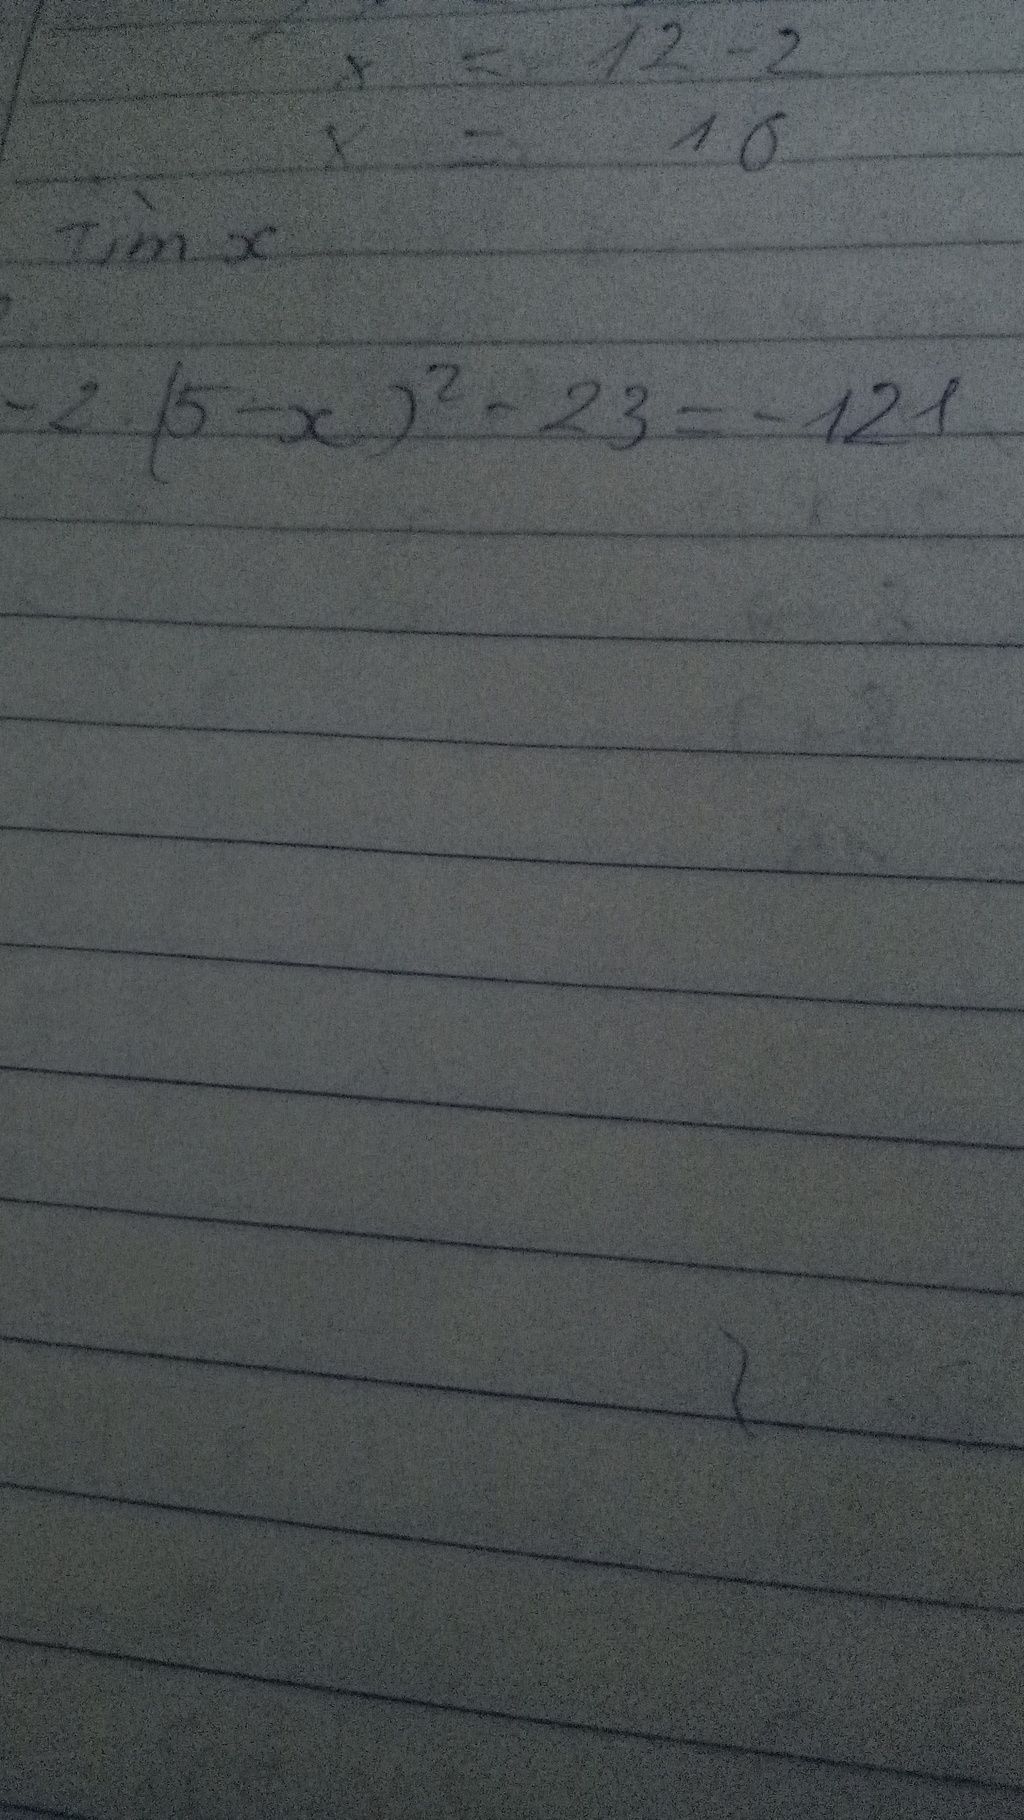 x = 12 - 2
x = 10
Tìm x
- 2 . (5 - x)² - 23 = - 121